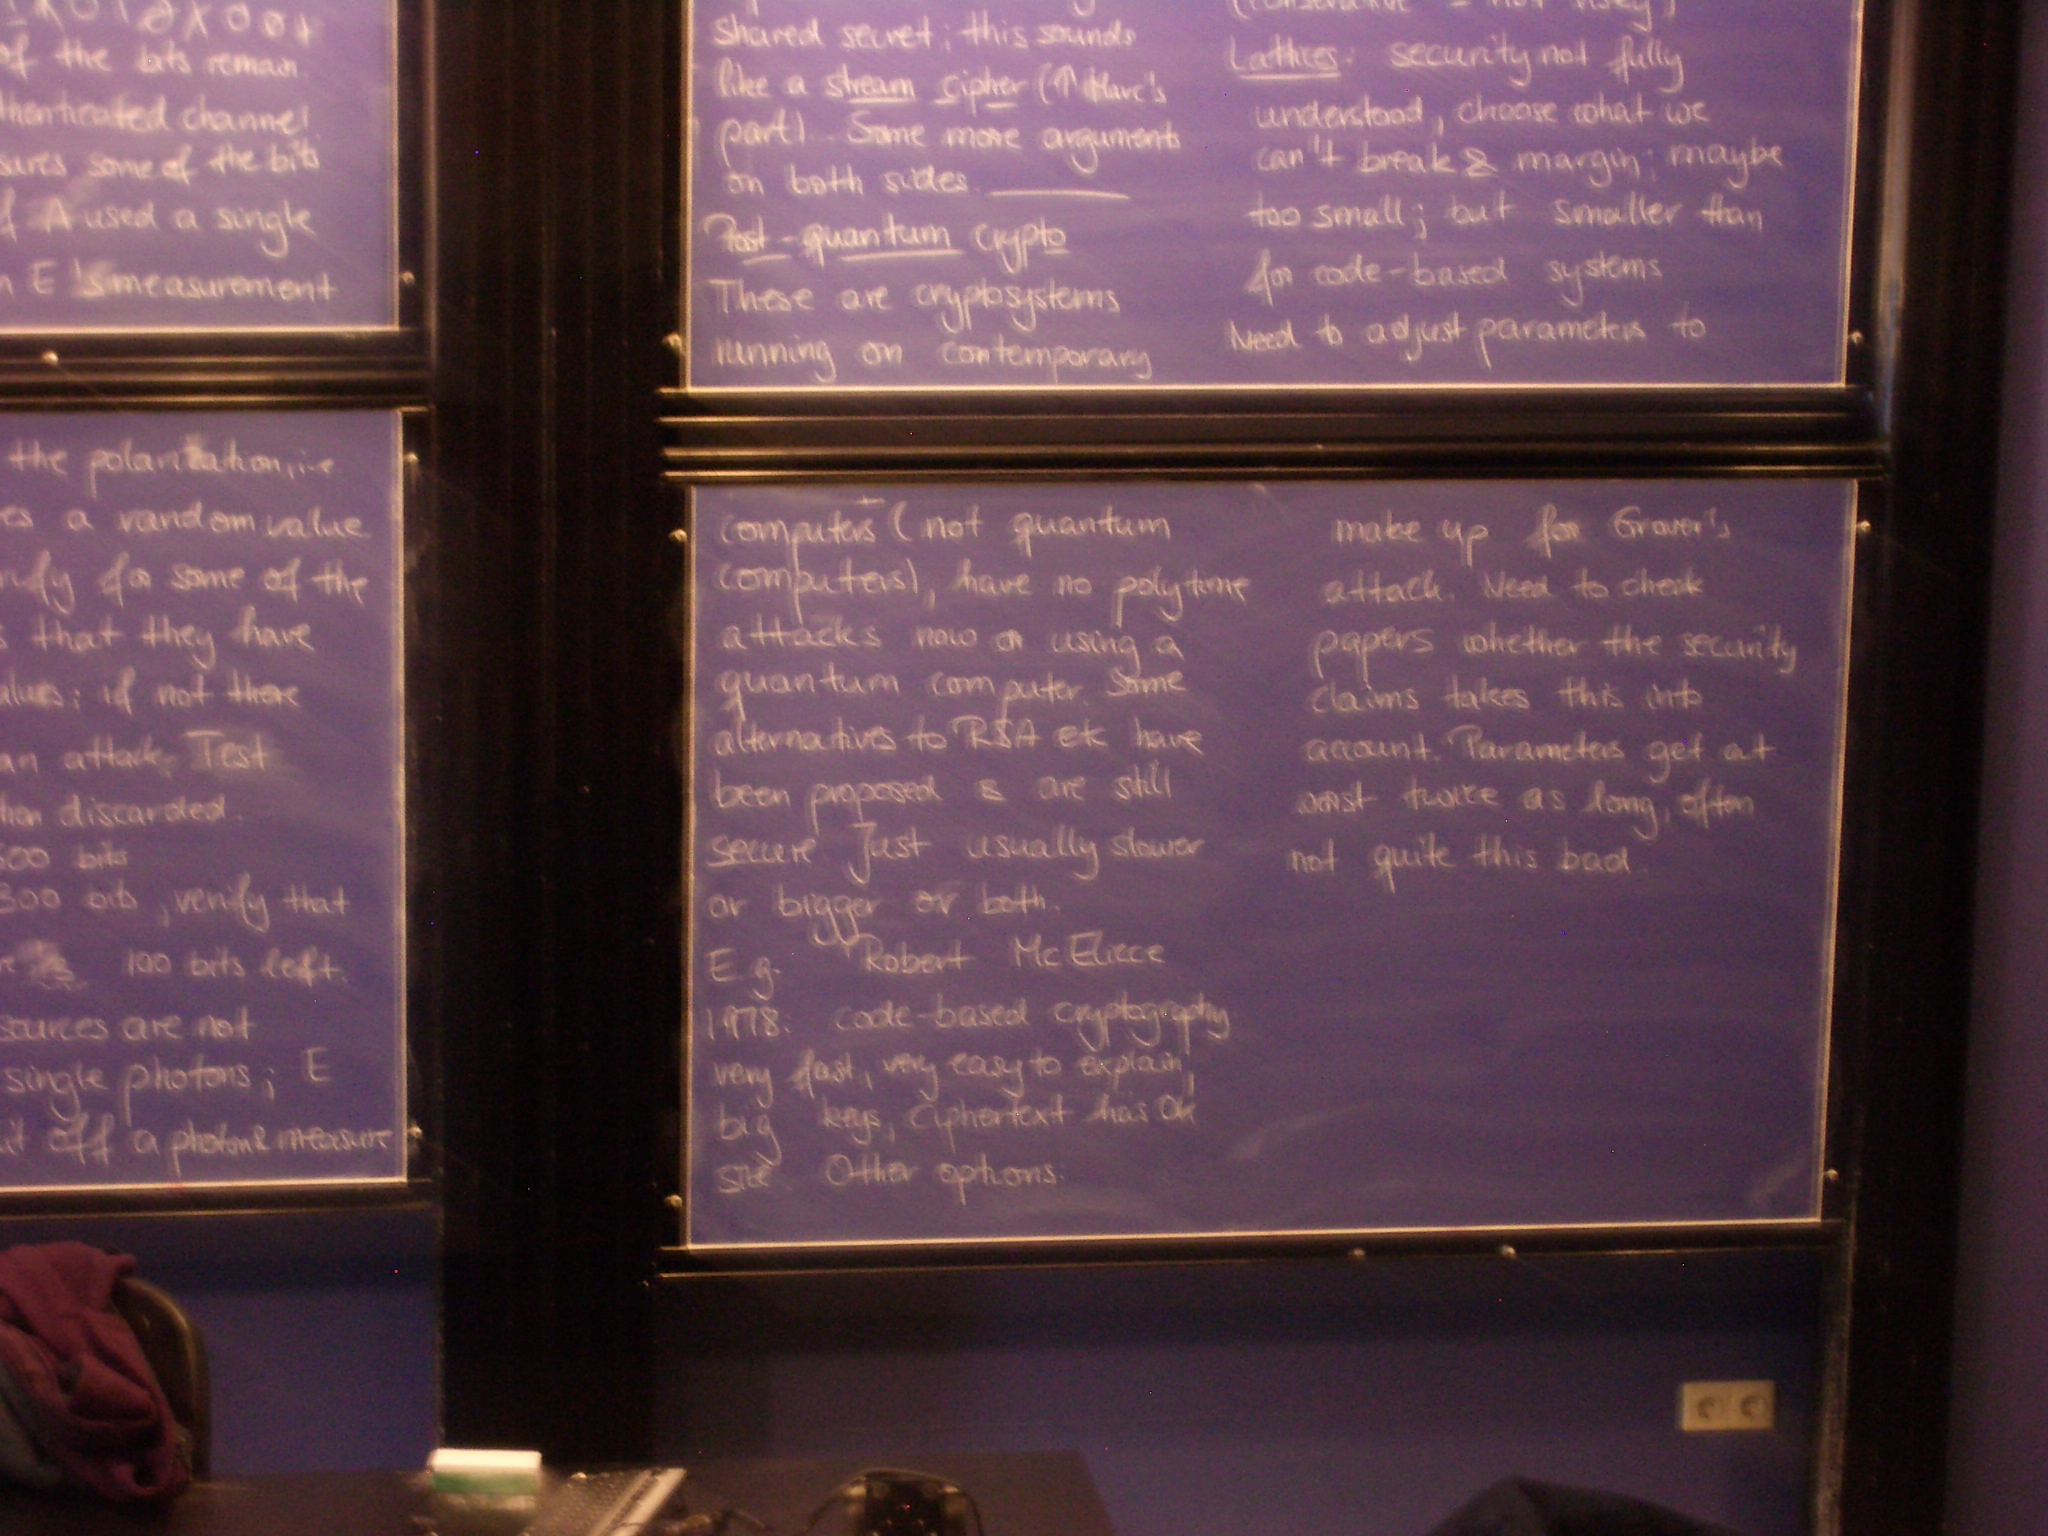 of the bits remain.
thenticated channel
sures some of the bits
f A used a single
n E 's measurement
the polarization, i.e.
es a random value
rify for some of the
s that they have
alues; if not there
an attack. Test
then discarded.
500 bits
300 bits, verify that
100 bits left.
sources are not
single photons; E
it off a photon & measure
shared secret; this sounds
like a stream cipher (↑ Marc's
part). Some more arguments
on both sides.
Post-quantum crypto
These are cryptosystems
running on contemporary
computers (not quantum
computers), have no polytime
attacks now or using a
quantum computer. Some
alternatives to RSA etc have
been proposed & are still
secure. Just usually slower
or bigger or both.
E.g. Robert McEliece
1978: code-based cryptography
very fast, very easy to explain,
big keys, ciphertext has ok
size. Other options:
(conservative = not risky)
Lattices: security not fully
understood, choose what we
can't break & margin; maybe
too small; but smaller than
for code-based systems
Need to adjust parameters to
make up for Grover's
attack. Need to check
papers whether the security
claims takes this into
account. Parameters get at
worst twice as long, often
not quite this bad.